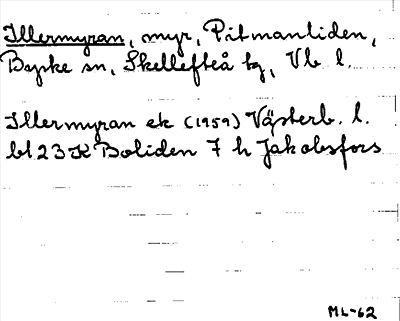 Illermyran, myr, Pitmanliden,
Byske sn, Skellefteå tg, Vb l.
Illermyran ek (1959) Västerb. l.
bl 23 K Boliden 7 h Jakobsfors
ML-62